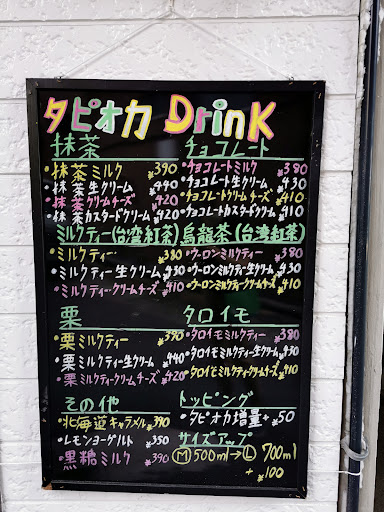 タピオカ Drink
抹茶
・抹茶ミルク ¥390
・抹茶生クリーム ¥440
・抹茶クリームチーズ ¥420
・抹茶カスタードクリーム ¥420
チョコレート
・チョコレートミルク ¥380
・チョコレート生クリーム ¥430
・チョコレートクリームチーズ ¥410
・チョコレートカスタードクリーム ¥410
ミルクティー(台湾紅茶)
・ミルクティー ¥380
・ミルクティー生クリーム ¥430
・ミルクティークリームチーズ ¥410
烏龍茶(台湾紅茶)
・ウーロンミルクティー ¥380
・ウーロンミルクティー生クリーム ¥430
・ウーロンミルクティークリームチーズ ¥410
栗
・栗ミルクティー ¥390
・栗ミルクティー生クリーム ¥440
・栗ミルクティークリームチーズ ¥420
タロイモ
・タロイモミルクティー ¥380
・タロイモミルクティー生クリーム ¥430
・タロイモミルクティークリームチーズ ¥410
その他
・北海道キャラメル ¥390
・レモンヨーグルト ¥350
・黒糖ミルク ¥390
トッピング
・タピオカ増量+¥50
サイズアップ
Ⓜ500ml→Ⓛ700ml
+¥100